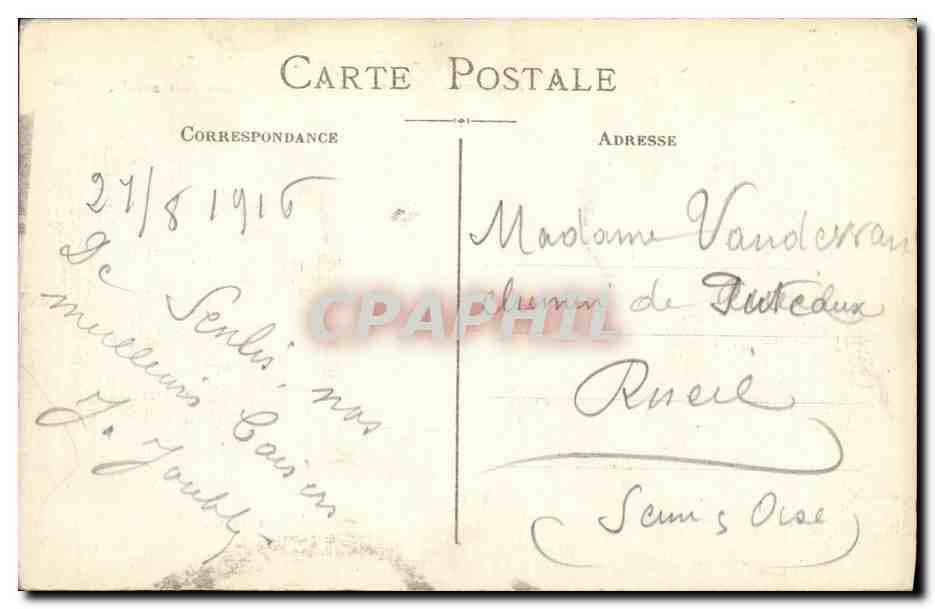 CARTE POSTALE
CORRESPONDANCE
ADRESSE
27/8 1916
De Senlis, nos
meilleurs Baisers
J.
Madame
chemin de Puteaux
Rueil
(Seine & Oise)
CPAPHIL